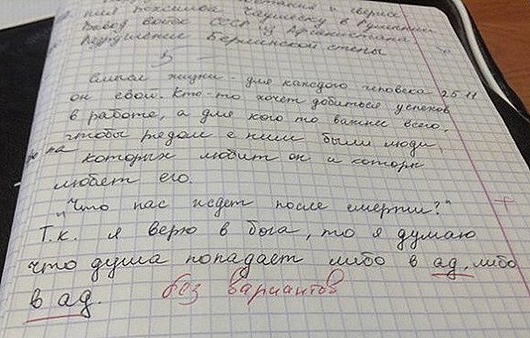 режим Чаушеску в Румынии
Вывод войск СССР из Афганистана
Разрушение Берлинской стены
5 -
Смысл жизни - для каждого человека 25.11
он свой. Кто-то хочет добиться успехов
в работе, а для кого то важнее всего,
чтобы рядом с ним были люди,
которых любит он и которы
любет его.
"Что нас ждет после смерти?"
Т.к. я верю в бога, то я думаю
что душа попадает либо в ад, либо
в ад. без вариантов